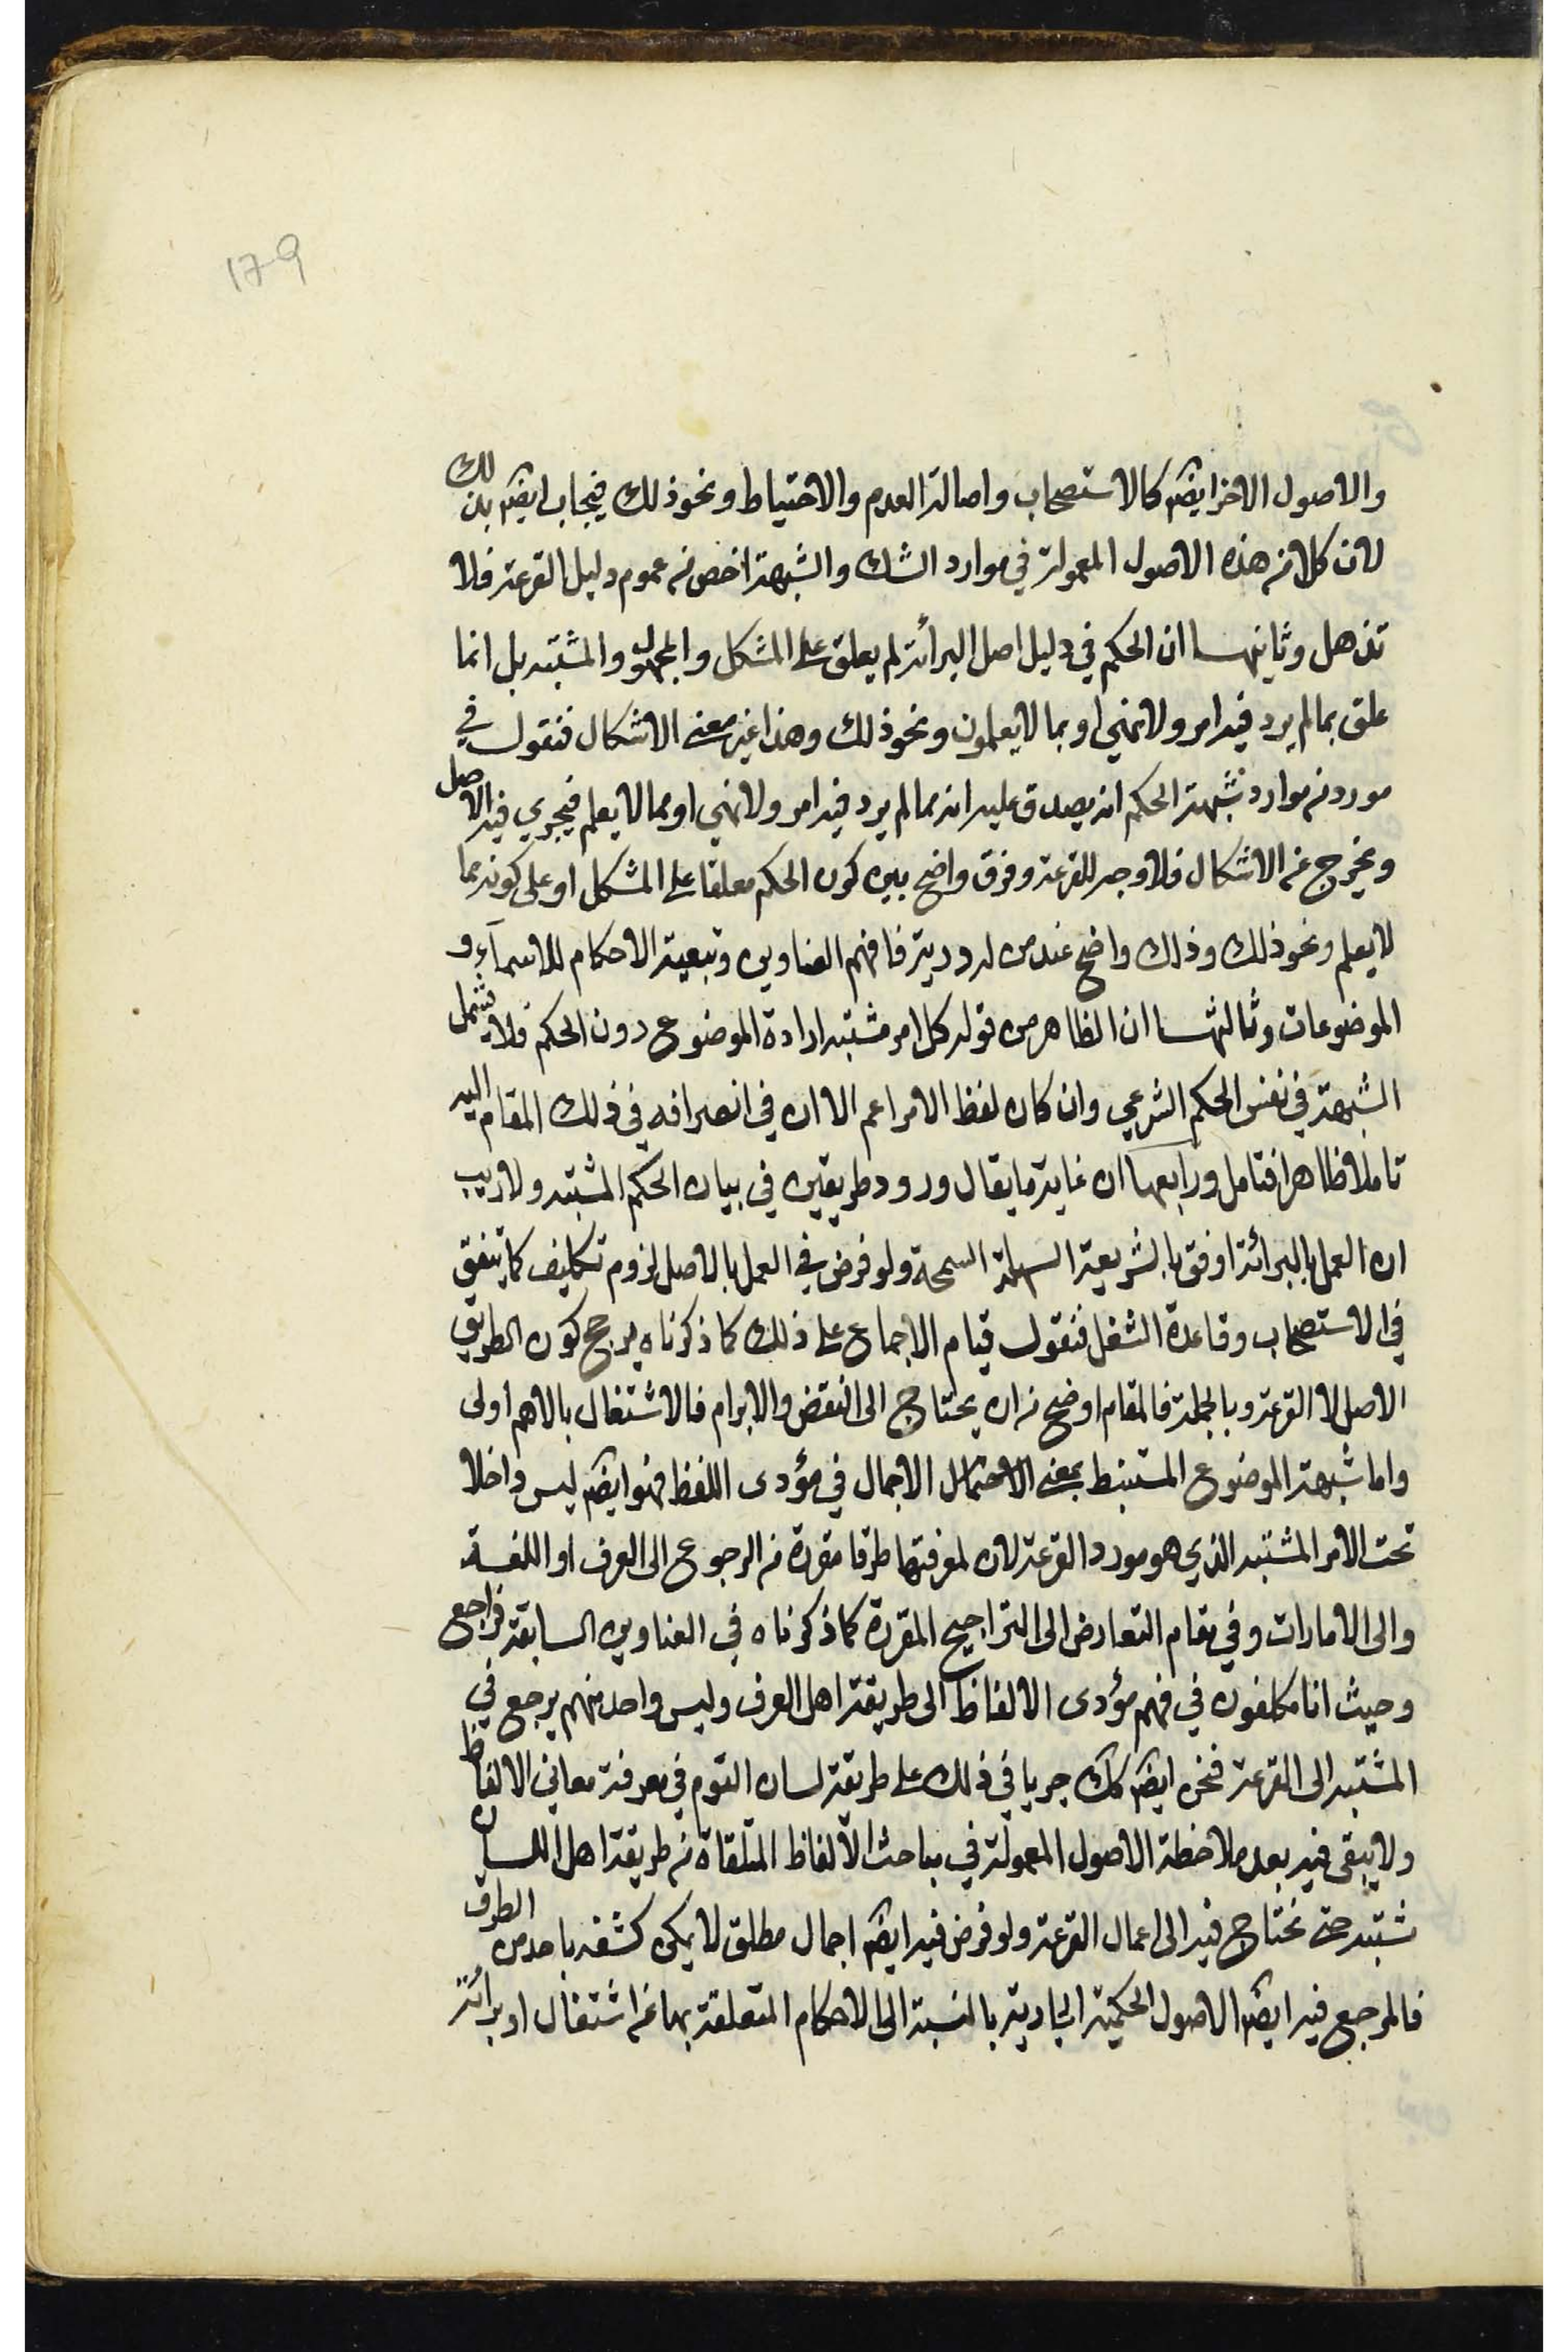 179
والاصول الاخر ايضم كالاستصحاب واصالة العدم والاحتياط ونحو ذلك فيجاب ايضم بذلك
لان كلا من هذه الاصول المعمولة في موارد الشك والشبهة اخص من عموم دليل القرعة فلا
تذهل وثانيهسا ان الحكم في دليل اصل البرائة لم يعلق على المشكل والمجهول والمشتبه بل انما
علق بما لم يرد فيه امر ولا نهي او بما لا يعلمون ونحو ذلك وهذا غير معنى الاشكال فنقول في
مورد من موارد شبهة الحكم انه يصدق عليه انه مما لم يرد فيه امر ولا نهي او مما لا يعلم فيجري فيه الاصل
ويخرج عن الاشكال فلا وجه للقرعة وفرق واضح بين كون الحكم معلقا على المشكل او على كونه مما
لا يعلم ونحو ذلك وذلك واضح عند من له دربة فافهم العناوين وتبعية الاحكام للاسمآء و
الموضوعات وثالثهسا ان الظاهر من قوله كل امر مشتبه ارادة الموضوع دون الحكم فلا يشمل
الشبهة في نفس الحكم الشرعي وان كان لفظ الامر اعم الا ان في انصرافه في ذلك المقام اليه
تاملا ظاهرا فتامل ورابعها ان غاية ما يقال ورود طريقين في بيان الحكم المشتبه ولا ريب
ان العمل بالبرائة اوفق بالشريعة السهلة السمحة ولو فرض في العمل بالاصل لزوم تكليف كما يتفق
في الاستصحاب وقاعدة الشغل فنقول قيام الاجماع على ذلك كما ذكرناه يرجح كون الطريق
الاصل لا القرعة وبالجملة فالمقام اوضح من ان يحتاج الى النقض والابرام فالاشتغال بالاهم اولى
واما شبهة الموضوع المستنبط بمعنى الاحتمال الاجمال في مؤدى اللفظ فهو ايضم ليس داخلا
تحت الامر المشتبه الذي هو مورد القرعة لان لمعرفتها طرقا مقررة من الرجوع الى العرف او اللغة
والى الامارات وفي مقام التعارض الى التراجيح المقررة كما ذكرناه في العناوين السابقة فراجع
وحيث انا مكلفون في فهم مؤدى الالفاظ الى طريقة اهل العرف وليس واحد منهم يرجع في
المشتبه الى القرعة فنحن ايضم كك جريا في ذلك على طريقة لسان القوم في معرفة معاني الالفاظ
ولا يبقى فيه بعد ملاحظة الاصول المعمولة في مباحث الالفاظ المتلقاة من طريقة اهل اللسان
شتبه حتى نحتاج فيه الى اعمال القرعة ولو فرض فيه ايضم اجمال مطلق لا يمكن كشفه باحد من الطرق
فالمرجع فيه ايضم الاصول الحكمية الجارية بالنسبة الى الاحكام المتعلقة بها من اشتغال او برائة